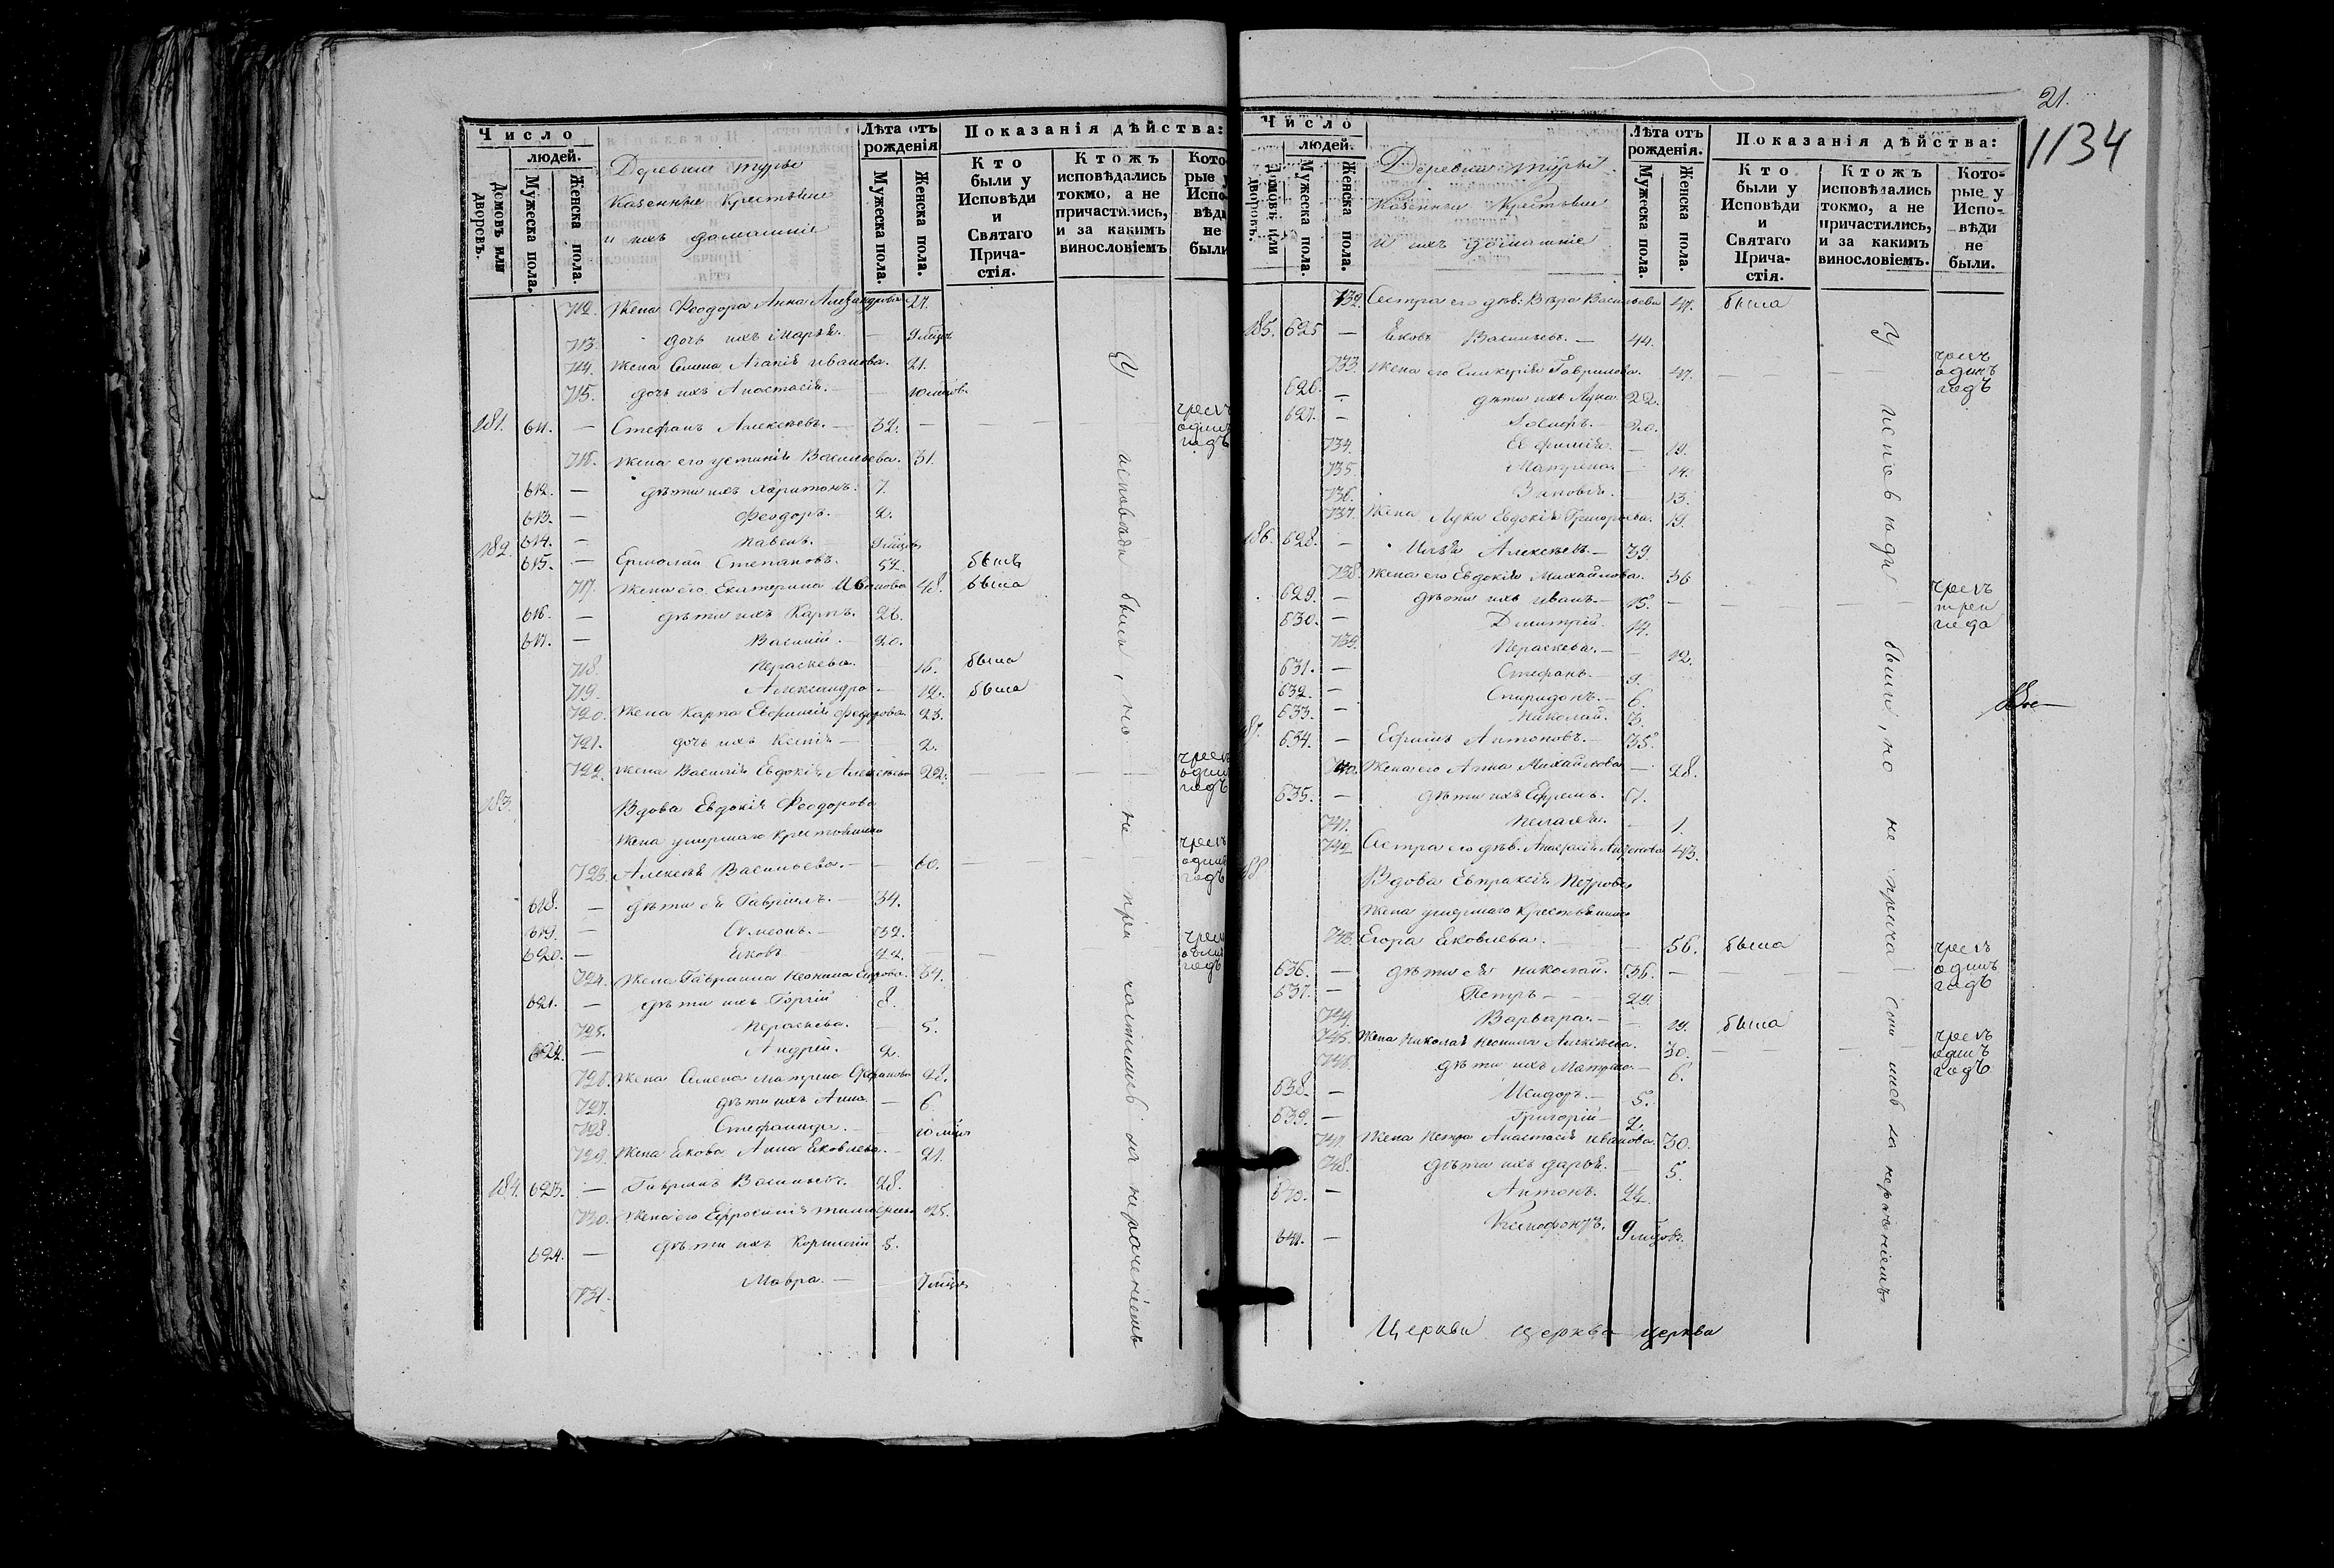 Число
людей.
Домовъ или дворовъ.
Мужеска пола.
Женска пола.
Деревни Турье
Казенные Крестьяне
и ихъ домашніе
Лѣта отъ рожденія
Мужеска пола.
Женска пола.
Показанія дѣйства:
Кто были у Исповѣди и Святаго Причастія.
Ктожъ исповѣдались токмо, а не причастились, и за какимъ винословіемъ
Которые у Исповѣди не были
712. Жена Феодора Анна Александрова 27.
713. дочь ихъ Марія. — 9 мѣсяц
714. Жена Семена Агапія Иванова. 21.
715. дочь ихъ Анастасія. — 10 мѣсяцов.
181. 611. — Стефанъ Алексѣевъ. — 32. — чрезъ одинъ годъ
716. Жена его Устинія Васильева. 31.
612. — дѣти ихъ Харитонъ. 7.
613. — Феодоръ. — 2.
614. — Павелъ. — 9 мѣсяц
182. 615. — Ермолай Степановъ. 52. былъ
717. Жена его Екатерина Иванова 48. была
616. — дѣти ихъ Карпъ. 26.
617. — Василій. — 20.
718. Параскева. 16. была
719. Александра — 12. была
720. Жена Карпа Евфимія Федорова. 23.
721. дочь ихъ Ксенія — 2.
722. Жена Василія Евдокія Алексѣева 22. — чрезъ одинъ годъ
183. Вдова Евдокія Феодорова
Жена умершаго крестьянина
723. Алексѣя Васильева. — 60. — чрезъ одинъ годъ
618. — дѣти ея Гавріилъ. — 34.
619. — Симеонъ. — 32.
620. — Яковъ 22. — чрезъ одинъ годъ
724. Жена Гавріила Неонила 34.
621. — дѣти ихъ Георгій 8.
725. Параскева. — 5.
622. — Андрей. — 2.
726. Жена Семена Матрина Стефанова 28.
727. дѣти ихъ Анна. — 6.
728. Стефанида. — 10 мѣсяц
729. Жена Якова Анна Яковлева. — 21.
184. 623. — Гавріилъ Васильевъ. 28.
730. Жена его Ефросинія 25.
624. — дѣти ихъ Корнилій 5.
731. Мавра. — 7 мѣсяц
У исповѣди были, но не причастились за нерачениемъ
21.
1134
Число
людей.
Домовъ или дворовъ.
Мужеска пола.
Женска пола.
Деревни Турье
Казенные Крестьяне
и ихъ домашніе
Лѣта отъ рожденія.
Мужеска пола.
Женска пола.
Показанія дѣйства:
Кто были у Исповѣди и Святаго Причастія.
Ктожъ исповѣдались токмо, а не причастились, и за какимъ винословіемъ.
Которые у Исповѣди не были.
732. Сестра его дѣв. Вѣра Васильева 47. была
185. 625 — Яковъ Васильевъ. — 44.
733. Жена его Гликерія Гаврилова. 47. — чрезъ одинъ годъ
626. — дѣти ихъ Лука 22.
627. — 20.
734. Евфимія. — 19.
735. Матрена. — 14.
736. Зиновія. — 13.
737. Жена Луки Евдокія Григорьева. 19.
186. 628. — Илья Алексѣевъ. — 39.
738. Жена его Евдокія Михайлова. 36
629. — дѣти ихъ Иванъ. — 15. — чрезъ три года
630. — Дмитрій. 14.
739. Параскева. — 12.
631. — Стефанъ. — 9.
632. — Спиридонъ. — 6.
633. — Николай. 3.
187. 634. — Ефимъ Антоновъ. — 35.
740. Жена его Анна Михайлова — 28.
635. — дѣти ихъ Ефремъ. 7.
741. Пелагія. — 1.
742 Сестра его дѣв. Анастасія Антонова 43.
188 Вдова Евпраксія Петрова
Жена умершаго Крестьянина
743. Егора Яковлева. — 56. была чрезъ одинъ годъ
636. — дѣти ея Николай. 36. —
637. — Петръ — 29.
744. Варвара. — 19. была
745. Жена Николая Неонила Алексѣева. 30. — чрезъ одинъ годъ
746. дѣти ихъ Матрона. — 6.
638. — Исидоръ. — 5.
639. — Григорій — 2.
747. Жена Петра Анастасія Иванова. 30.
748. дѣти ихъ Дарья. — 5.
640. — Антонъ. 2
641. — Ксенофонтъ. 9 мѣсяцовъ.
У исповѣди были, но не причастились за нерачениемъ
Церкви церква церква